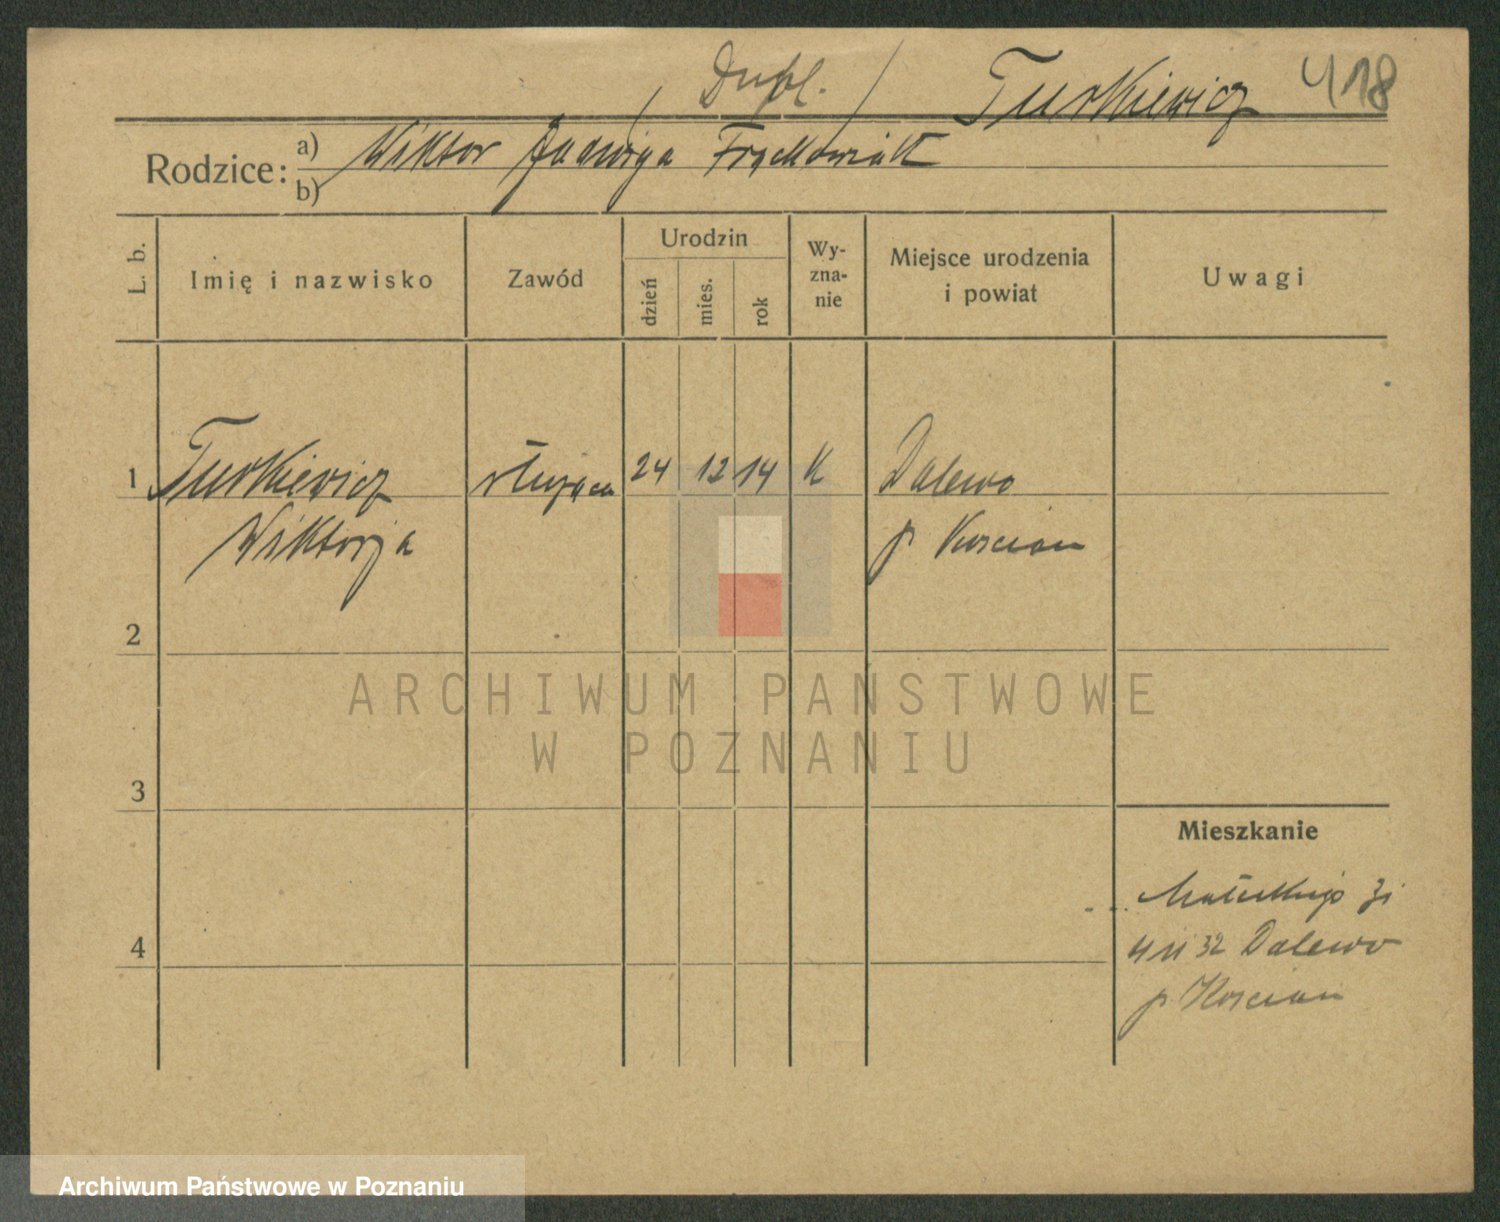 Dupl. Turkiewicz 418
Rodzice: a) Wiktor Jadwiga Frąckowiak
b)
L. b.
Imię i nazwisko
Zawód
Urodzin
dzień
mies.
rok
Wy-
zna-
nie
Miejsce urodzenia
i powiat
Uwagi
1 Turkiewicz służąca 24 12 14 K Dalewo
Wiktorja p Koscian
2
ARCHIWUM PAŃSTWOWE
W POZNANIU
3
Mieszkanie
31
4
4 11 32 Dalewo
p Koscian
Archiwum Państwowe w Poznaniu